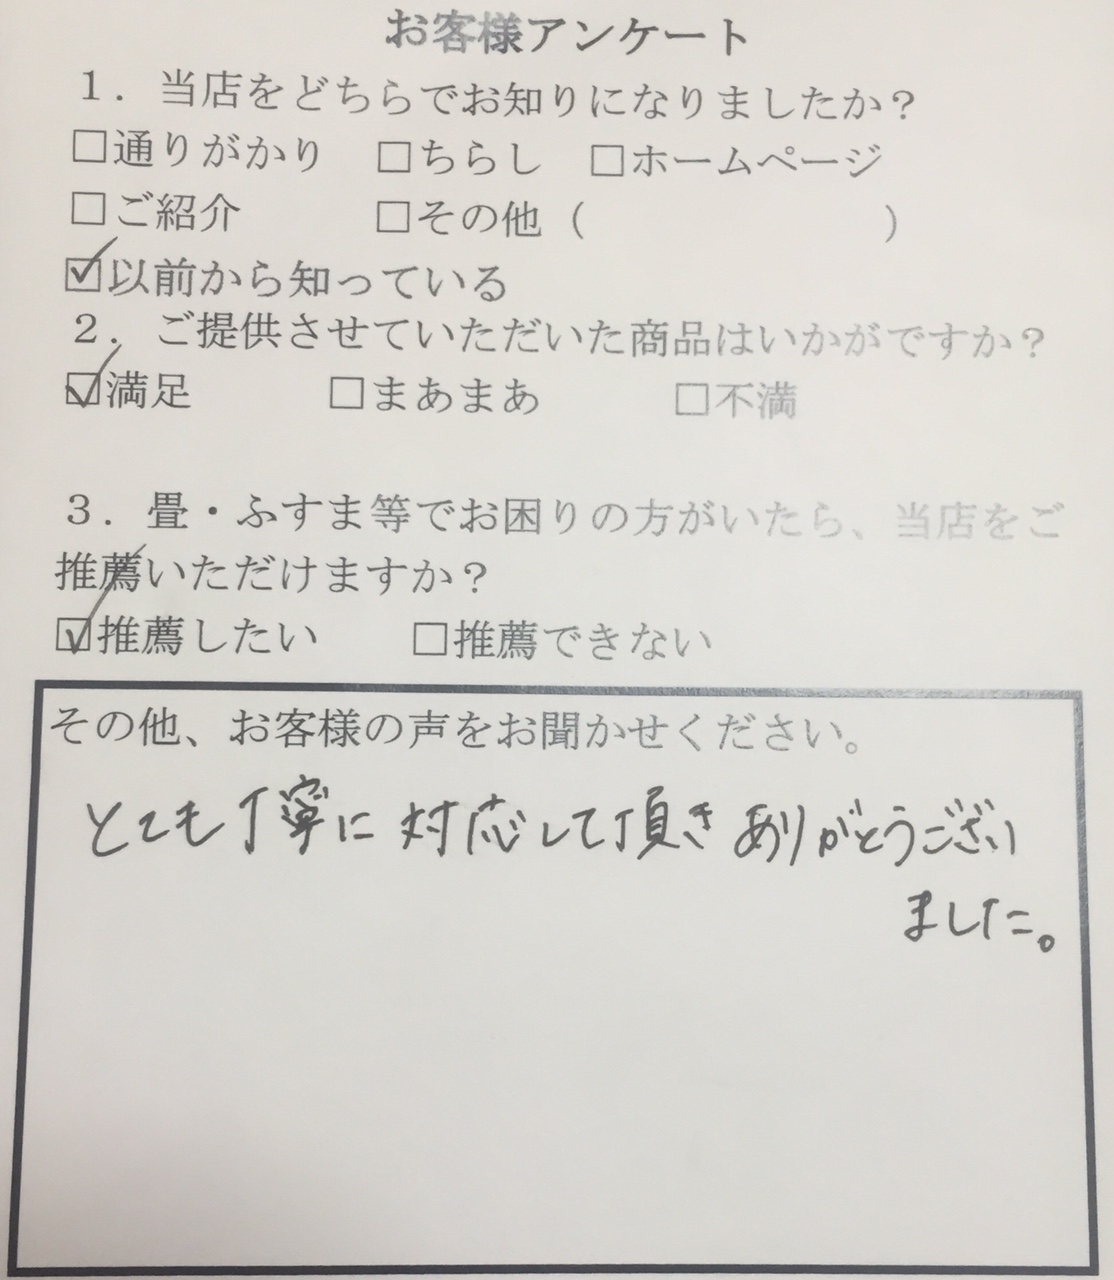 お客様アンケート
１．当店をどちらでお知りになりましたか？
□通りがかり　□ちらし　□ホームページ
□ご紹介　　　□その他（　　　　　　　）
☑以前から知っている
２．ご提供させていただいた商品はいかがですか？
☑満足　　　□まあまあ　　　□不満
３．畳・ふすま等でお困りの方がいたら、当店をご
推薦いただけますか？
☑推薦したい　　□推薦できない
その他、お客様の声をお聞かせください。
とても丁寧に対応して頂きありがとうござい
ました。